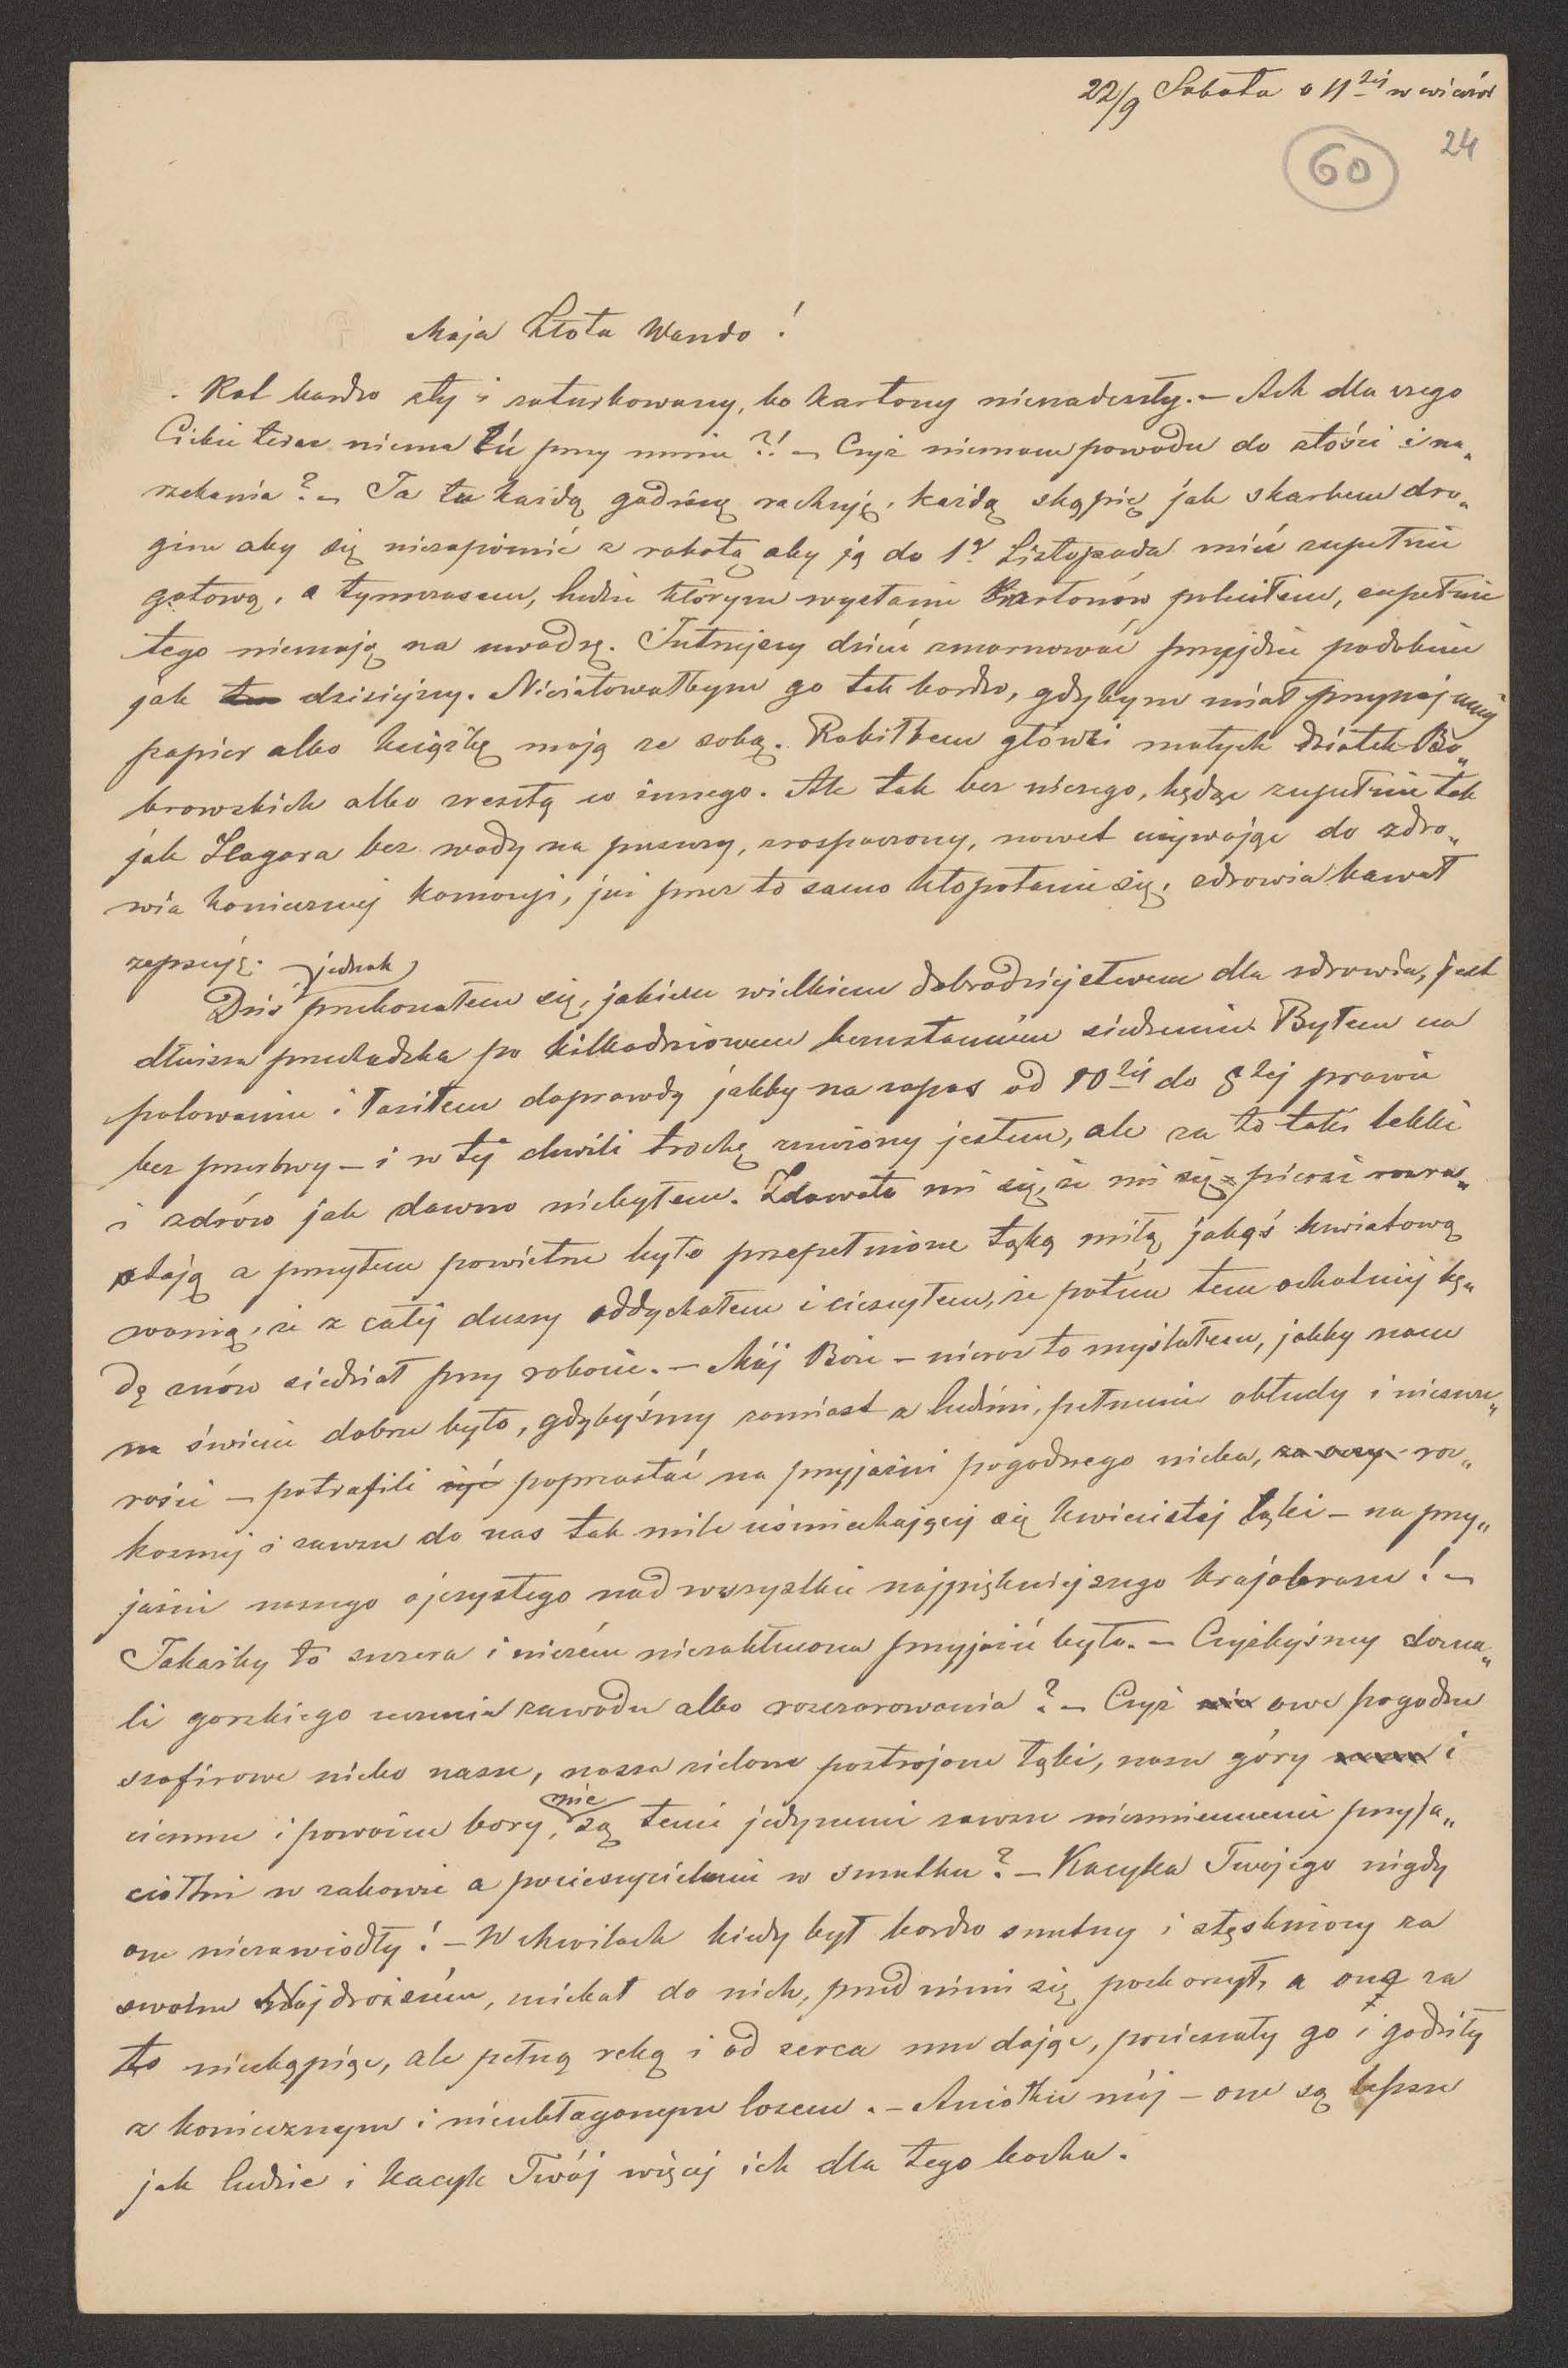 22/9 Sobota o 11tej w wieczór
24
60
Moja Złota Wando!
Kot bardzo zły i zaturbowany, bo kartony nienadeszły. – Ach dla czego
Ciebie teraz niema tú przy mnie?! – Czyż niemam powodu do złości i na„
rzekania? – Ja tu każdą godzinę rachuję, każdą skąpię jak skarbem dro„
gim aby się niezapóźnić z robotą aby ją do 1go Listopada mieć zupełnie
gotową, a tymczasem, ludzie którym wysłanie kartonów poleciłem, zupełnie
tego niemają na uwadze. Jutrzejszy dzień zmarnować przyjdzie podobnie
jak dzisiejszy. Nieżałowałbym go tak bardzo, gdybym miał przynajmniej
papier albo książkę moją ze sobą. Robiłbem główki małych dziatek Bo„
browskich albo zresztą co innego. Ale tak bez niczego, będąc zupełnie tak
jak Hagara bez wody na puszczy, zrospaczony, nawet używając do zdro„
wia koniecznej komocyi, już przez to samo kłopotanie się, zdrowia kawał
zepsuję.
Dziś jednak przekonałem się, jakiem wielkiem dobrodziejstwem dla zdrowia, jest
dłuższa przechadzka po kilkodniowem bezustannem siedzeniu. Byłem na
polowaniu i łaziłem doprawdy jakby na zapas od 10tej do 8tej prawie
bez przerwy – i w téj chwili trochę zmęczony jestem, ale za to taki lekki
i zdrów jak dawno niebyłem. Zdawało mi się, że mi się piersi rozra„
stają a przytem powietrze było przepełnione taką miłą jakąś kwiatową
wonią, że z całéj duszy oddychałem i cieszyłem, że potem tem ochotniej bę„
dę znów siedział przy robocie. – Mój Boże – nieraz to myślałem, jakby nam
na świecie dobrze było, gdybyśmy zamiast z ludźmi, pełnemi obłudy i nieszcze„
rości – potrafili żyć poprzestać na przyjaźni pogodnego nieba, za oczy roz„
kosznej i zawsze do nas tak mile uśmiechającej się kwiecistej łąki – na przy„
jaźni naszego ojczystego nad wszystkie najpiękniejszego krajobrazu! –
Jakażby to szczera i niczém niezakłucona przyjaźń była. – Czyżbyśmy dozna„
li gorzkiego uczucia zawodu albo rozczarowania? – Czyż nie owe pogodne
szafirowe niebo nasze, nasze zielone postrojone łąki, nasze góry nasze i
ciemne i poważne bory, nie są temi jedynemi zawsze niezmiennemi przyja„
ciółmi w zabawie a pocieszycielami w smutku? – Kacyka Twojego nigdy
one niezawiodły! – W chwilach kiedy był bardzo smutny i stęskniony za
swoim Najdroższém, uciekał do nich, przed nimi się pochorzył, a one za
to nieskąpiąc, ale pełną ręką i od serca mu dając, pocieszały go i godziły
z koniecznym i nieubłaganym losem. – Aniołku mój – one są lepsze
jak ludzie i kacyk Twój więcej ich dla tego kocha.